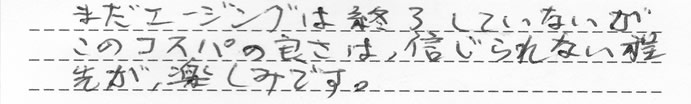 まだエージングは終了していないが
このコスパの良さは,信じられない程
先が,楽しみです。